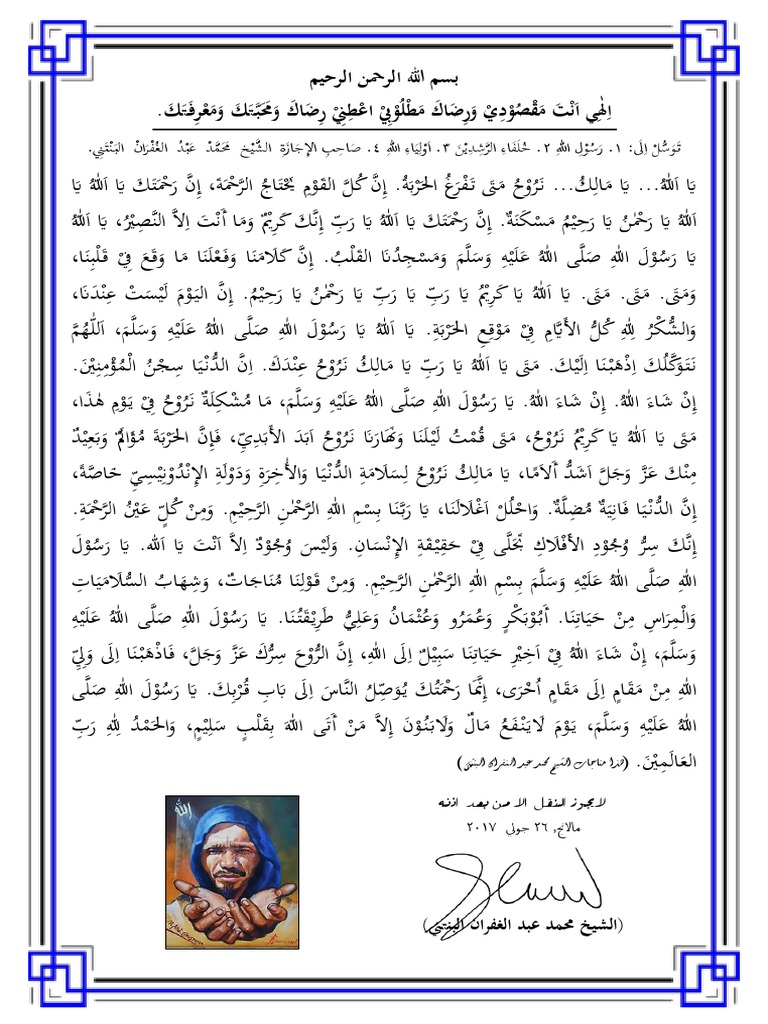 بسم الله الرحمن الرحيم
اِلٰهِي اَنْتَ مَقْصُوْدِيْ وَرِضَاكَ مَطْلُوْبِيْ اعْطِنِيْ رِضَاكَ وَمَحَبَّتَكَ وَمَعْرِفَتَكَ.
تَوَسُّلْ اِلَى: ١. رَسُوْلِ اللهِ ٢. خُلَفَاءِ الرَّشِدِيْنَ ٣. اَوْلِيَاءِ اللهِ ٤. صَاحِبِ الإِجَازَةِ الشَّيْخ مُحَمَّدْ عَبْدُ الغُفْرَانْ البَنْتَنِي.
يَا اَللهُ... يَا مَالِكُ... نَرُوْحُ مَتَى تَفْرَغُ الحَرْبَةُ. إِنَّ كُلَّ القَوْمِ يَحْتَاجُ الرَّحْمَةَ، إِنَّ رَحْمَتَكَ يَا اَللهُ يَا
اَللهُ يَا رَحْمٰنُ يَا رَحِيْمُ مَسْكَنَةٌ. إِنَّ رَحْمَتَكَ يَا اَللهُ يَا رَبِّ إِنَّكَ كَرِيْمٌ وَمَا أَنْتَ اِلاَّ النَّصِيْرُ، يَا اَللهُ
يَا رَسُوْلَ اللهِ صَلَّى اللهُ عَلَيْهِ وَسَلَّمَ وَمَسْجِدُنَا القَلْبُ. إِنَّ كَلَامَنَا وَفَعْلَنَا مَا وَقَعَ فِيْ قَلْبِنَا،
وَمَتَى. مَتَى. مَتَى. يَا اَللهُ يَا كَرِيْمُ يَا رَبِّ يَا رَبِّ يَا رَحْمٰنُ يَا رَحِيْمُ. إِنَّ اليَوْمَ لَيْسَتْ عِنْدَنَا،
وَالشُّكْرُ لِلهِ كُلُّ الأَيَّامِ فِيْ مَوْقِعِ الحَرْبَةِ. يَا اَللهُ يَا رَسُوْلَ اللهِ صَلَّى اللهُ عَلَيْهِ وَسَلَّمَ، اَللّٰهُمَّ
نَتَوَكَّلُكَ اِذْهَبْنَا اِلَيْكَ. مَتَى يَا اَللهُ يَا رَبِّ يَا مَالِكُ نَرُوْحُ عِنْدَكَ. اِنَّ الدُّنْيَا سِجْنُ الْمُؤْمِنِيْنَ.
إِنْ شَاءَ اللهُ. إِنْ شَاءَ اللهُ. يَا رَسُوْلَ اللهِ صَلَّى اللهُ عَلَيْهِ وَسَلَّمَ، مَا مُشْكِلَةٌ نَرُوْحُ فِيْ يَوْمِ هٰذَا،
مَتَى يَا اَللهُ يَا كَرِيْمُ نَرُوْحُ، مَتَى قُمْتُ لَيْلَنَا وَنَهَارَنَا نَرُوْحُ اَبَدَ الأَبَدِيِّ، فَإِنَّ الحَرْبَةَ مُؤَالَمٌ وَبَعِيْدٌ
مِنْكَ عَزَّ وَجَلَّ اَشَدُّ أَلاَمًا، يَا مَالِكُ نَرُوْحُ لِسَلَامَةِ الدُّنْيَا وَالأُخِرَةِ وَدَوْلَةِ الإِنْدُوْنِيْسِيِّ خَاصَّةً،
إِنَّ الدُّنْيَا فَانِيَةٌ مُضِلَّةٌ. وَاحْلُلْ اَغْلَالَنَا، يَا رَبَّنَا بِسْمِ اللهِ الرَّحْمٰنِ الرَّحِيْمِ. وَمِنْ كُلِّ عَيْنُ الرَّحْمَةِ.
إِنَّكَ سِرُّ وُجُوْدِ الأَفْلَاكِ تَجَلَّى فِيْ حَقِيْقَةِ الإِنْسَانِ. وَلَيْسَ وُجُوْدٌ اِلاَّ اَنْتَ يَا اَلله. يَا رَسُوْلَ
اللهِ صَلَّى اللهُ عَلَيْهِ وَسَلَّمَ بِسْمِ اللهِ الرَّحْمٰنِ الرَّحِيْمِ. وَمِنْ قَوْلِنَا مُنَاجَاتٌ، وَشِهَابُ السُّلَامِيَاتِ
وَالْمِرَاسِ مِنْ حَيَاتِنَا. أَبُوْبَكْرٍ وَعُمَرُو وَعُثْمَانُ وَعَلِيُّ طَرِيْقَتُنَا. يَا رَسُوْلَ اللهِ صَلَّى اللهُ عَلَيْهِ
وَسَلَّمَ، إِنْ شَاءَ اللهُ فِيْ اَخِيْرِ حَيَاتِنَا سَبِيْلٌ اِلَى اللهِ، إِنَّ الرُّوْحَ سِرُّكَ عَزَّ وَجَلَّ، فَاذْهَبْنَا اِلَى وَلِيِّ
اللهِ مِنْ مَقَامٍ اِلَى مَقَامٍ اُخْرَى، إِنَّمَا رَحْمَتُكَ يُوَصِّلُ النَّاسَ اِلَى بَابِ قُرْبِكَ. يَا رَسُوْلَ اللهِ صَلَّى
اللهُ عَلَيْهِ وَسَلَّمَ، يَوْمَ لَايَنْفَعُ مَالٌ وَلَابَنُوْنَ إِلاَّ مَنْ أَتَى اللهَ بِقَلْبٍ سَلِيْمٍ، وَالحَمْدُ لِلهِ رَبِّ
العَالَمِيْنَ. (هذا مناجات الشيخ محمد عبد الغفران البنتني)
لايجوز النقل الا من بعد اذنه
مالانج, ٢٦ جولي ٢٠١٧
(الشيخ محمد عبد الغفران البنتني)
الله